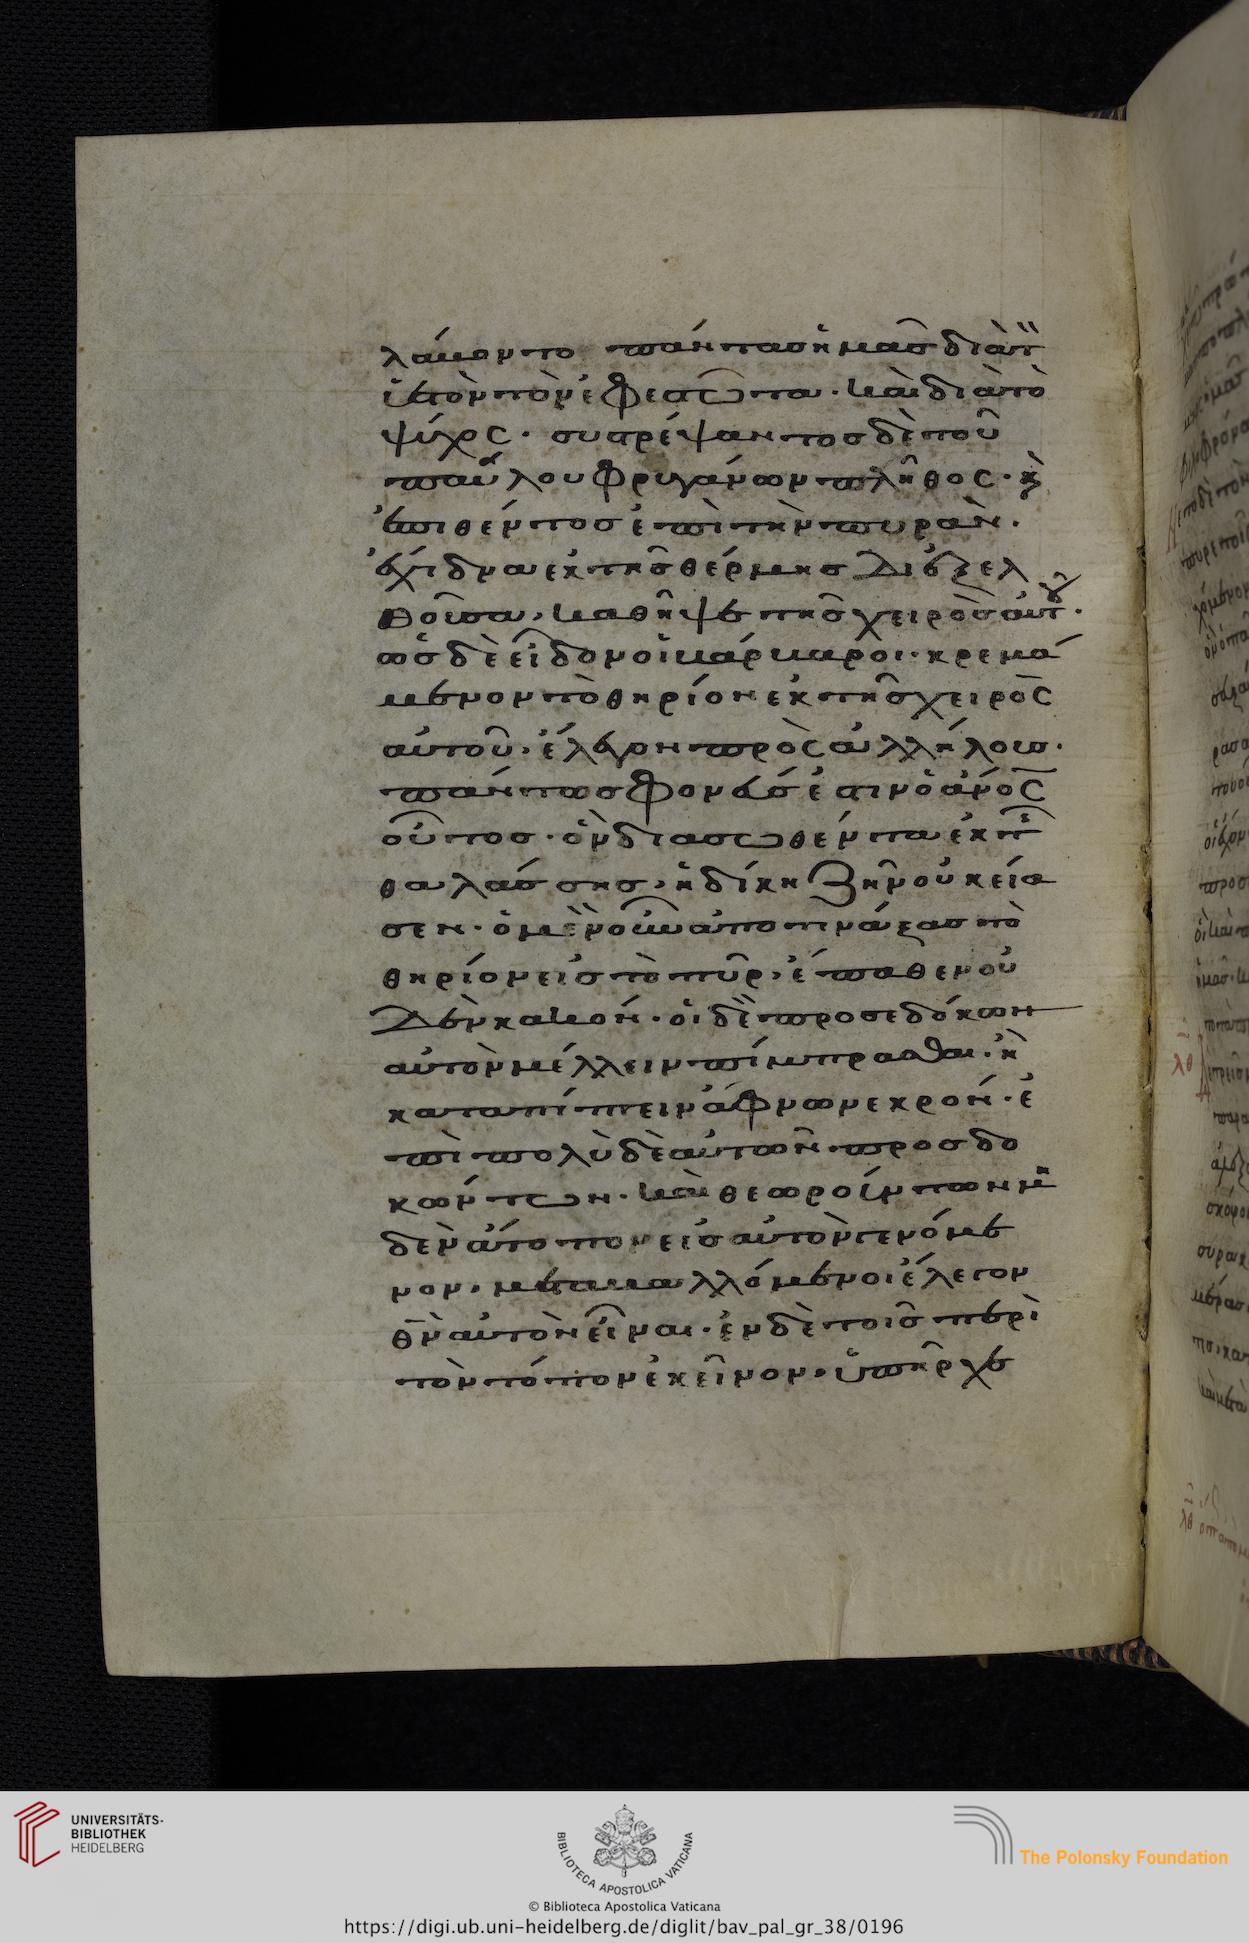 λάμβοντο πάντας ἡμᾶς διὰ τ
ὑετὸν τὸν ἐφεστῶτα· καὶ διὰ τὸ
ψύχος· συστρέψαντος δὲ τοῦ
παύλου φρυγάνων πλῆθος· κ
ἐπιθέντος ἐπὶ τὴν πυράν·
ἔχιδνα ἐκ τῆς θέρμης διεξελ
θοῦσα, καθῆψε τῆς χειρὸς αὐτοῦ·
ὡς δὲ εἶδον οἱ βάρβαροι· κρεμά
μενον τὸ θηρίον ἐκ τῆς χειρὸς
αὐτοῦ· ἔλεγον πρὸς ἀλλήλους·
πάντως φονεύς ἐστιν ὁ ἄνος
οὗτος· ὃν διασωθέντα ἐκ τῆς
θαλάσσης, ἡ δίκη ζῆν οὐκ εἴα
σεν· ὁ μὲν οὖν ἀποτινάξας τὸ
θηρίον εἰς τὸ πῦρ, ἔπαθεν οὐ
δὲν κακόν· οἱ δὲ προσεδόκων
αὐτὸν μέλλειν πίμπρασθαι· κ
καταπίπτειν ἄφνω νεκρόν· ἐ
πὶ πολὺ δὲ αὐτῶν προσδο
κώντων· καὶ θεωρούντων μη
δὲν ἄτοπον εἰς αὐτὸν γενόμε
νον, μεταβαλλόμενοι ἔλεγον
θν αὐτὸν εἶναι· ἐν δὲ τοῖς περὶ
τὸν τόπον ἐκεῖνον, ὑπῆρχε
UNIVERSITÄTS-
BIBLIOTHEK
HEIDELBERG
BIBLIOTECA APOSTOLICA VATICANA
The Polonsky Foundation
© Biblioteca Apostolica Vaticana
https://digi.ub.uni-heidelberg.de/diglit/bav_pal_gr_38/0196